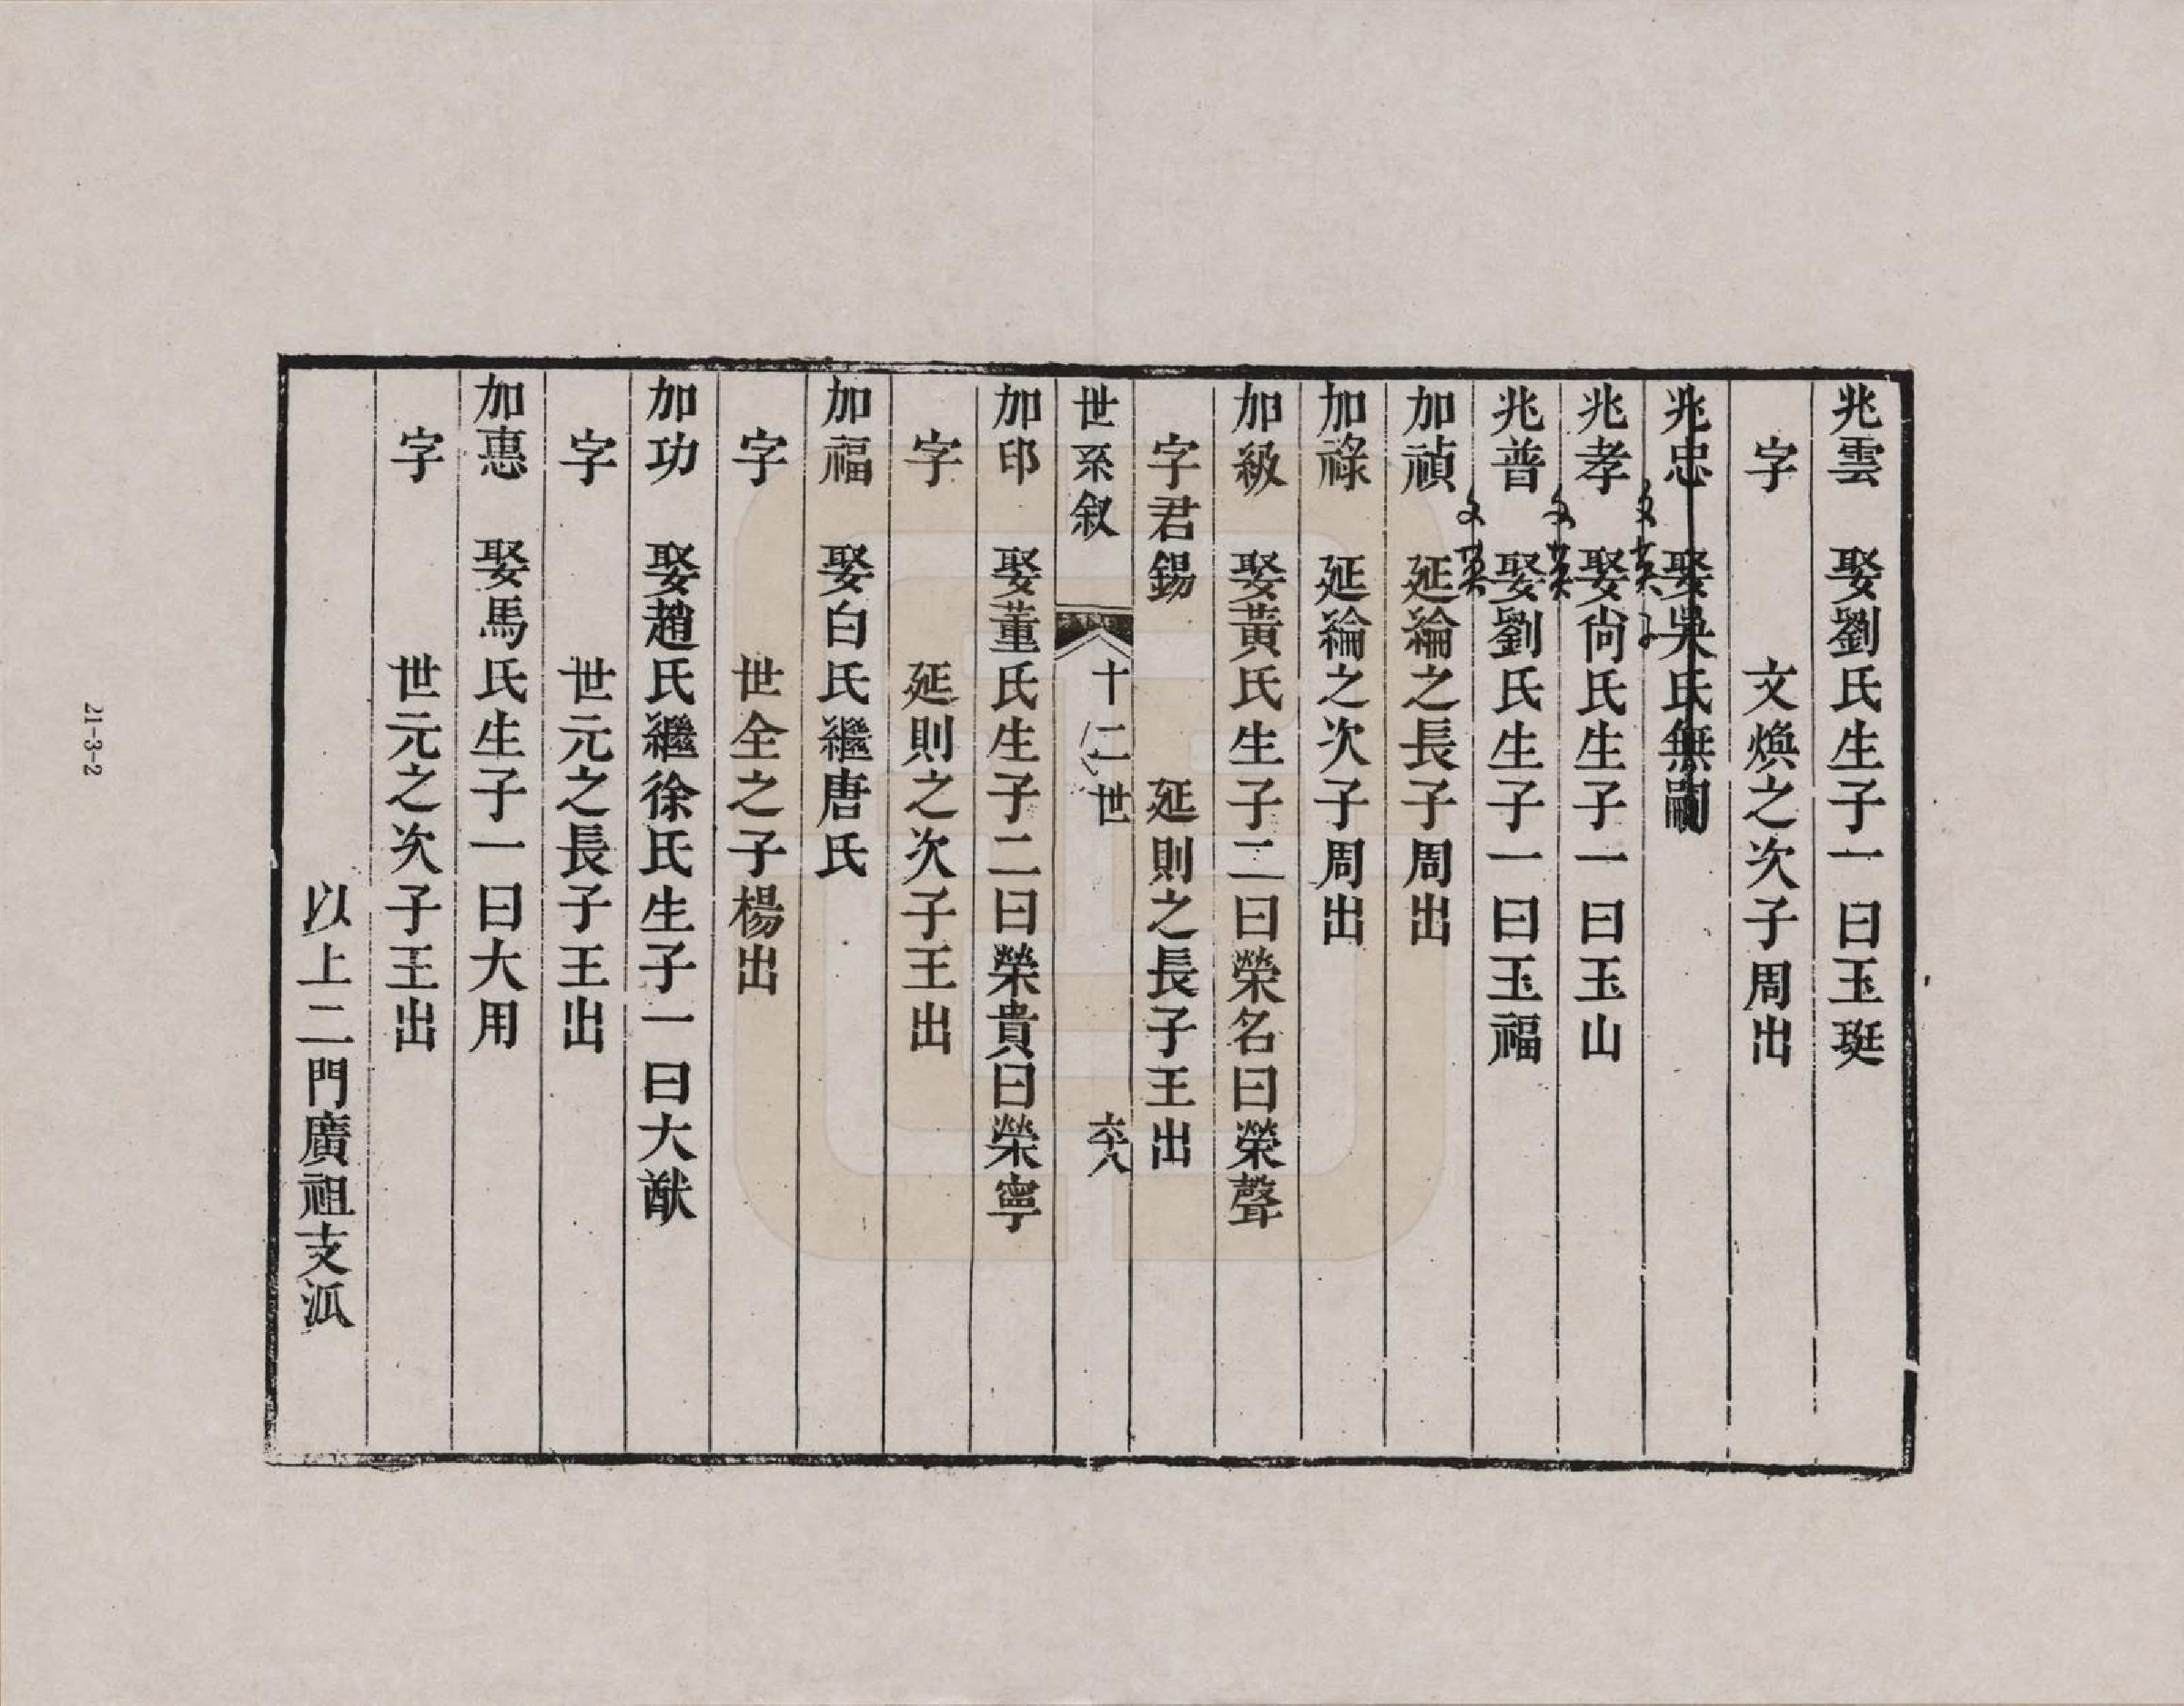 兆雲　娶劉氏生子一曰玉珽
字　文煥之次子周出
兆忠　娶吳氏無嗣
兆孝　娶尙氏生子一曰玉山
兆普　娶劉氏生子一曰玉福
加禎　延綸之長子周出
加祿　延綸之次子周出
加級　娶黃氏生子二曰榮名曰榮聲
字君錫　延則之長子王出
世系叙　十二世　六八
加印　娶董氏生子二曰榮貴曰榮寧
字　延則之次子王出
加福　娶白氏繼唐氏
字　世全之子楊出
加功　娶趙氏繼徐氏生子一曰大猷
字　世元之長子王出
加惠　娶馬氏生子一曰大用
字　世元之次子王出
以上二門廣祖支派
21-3-2